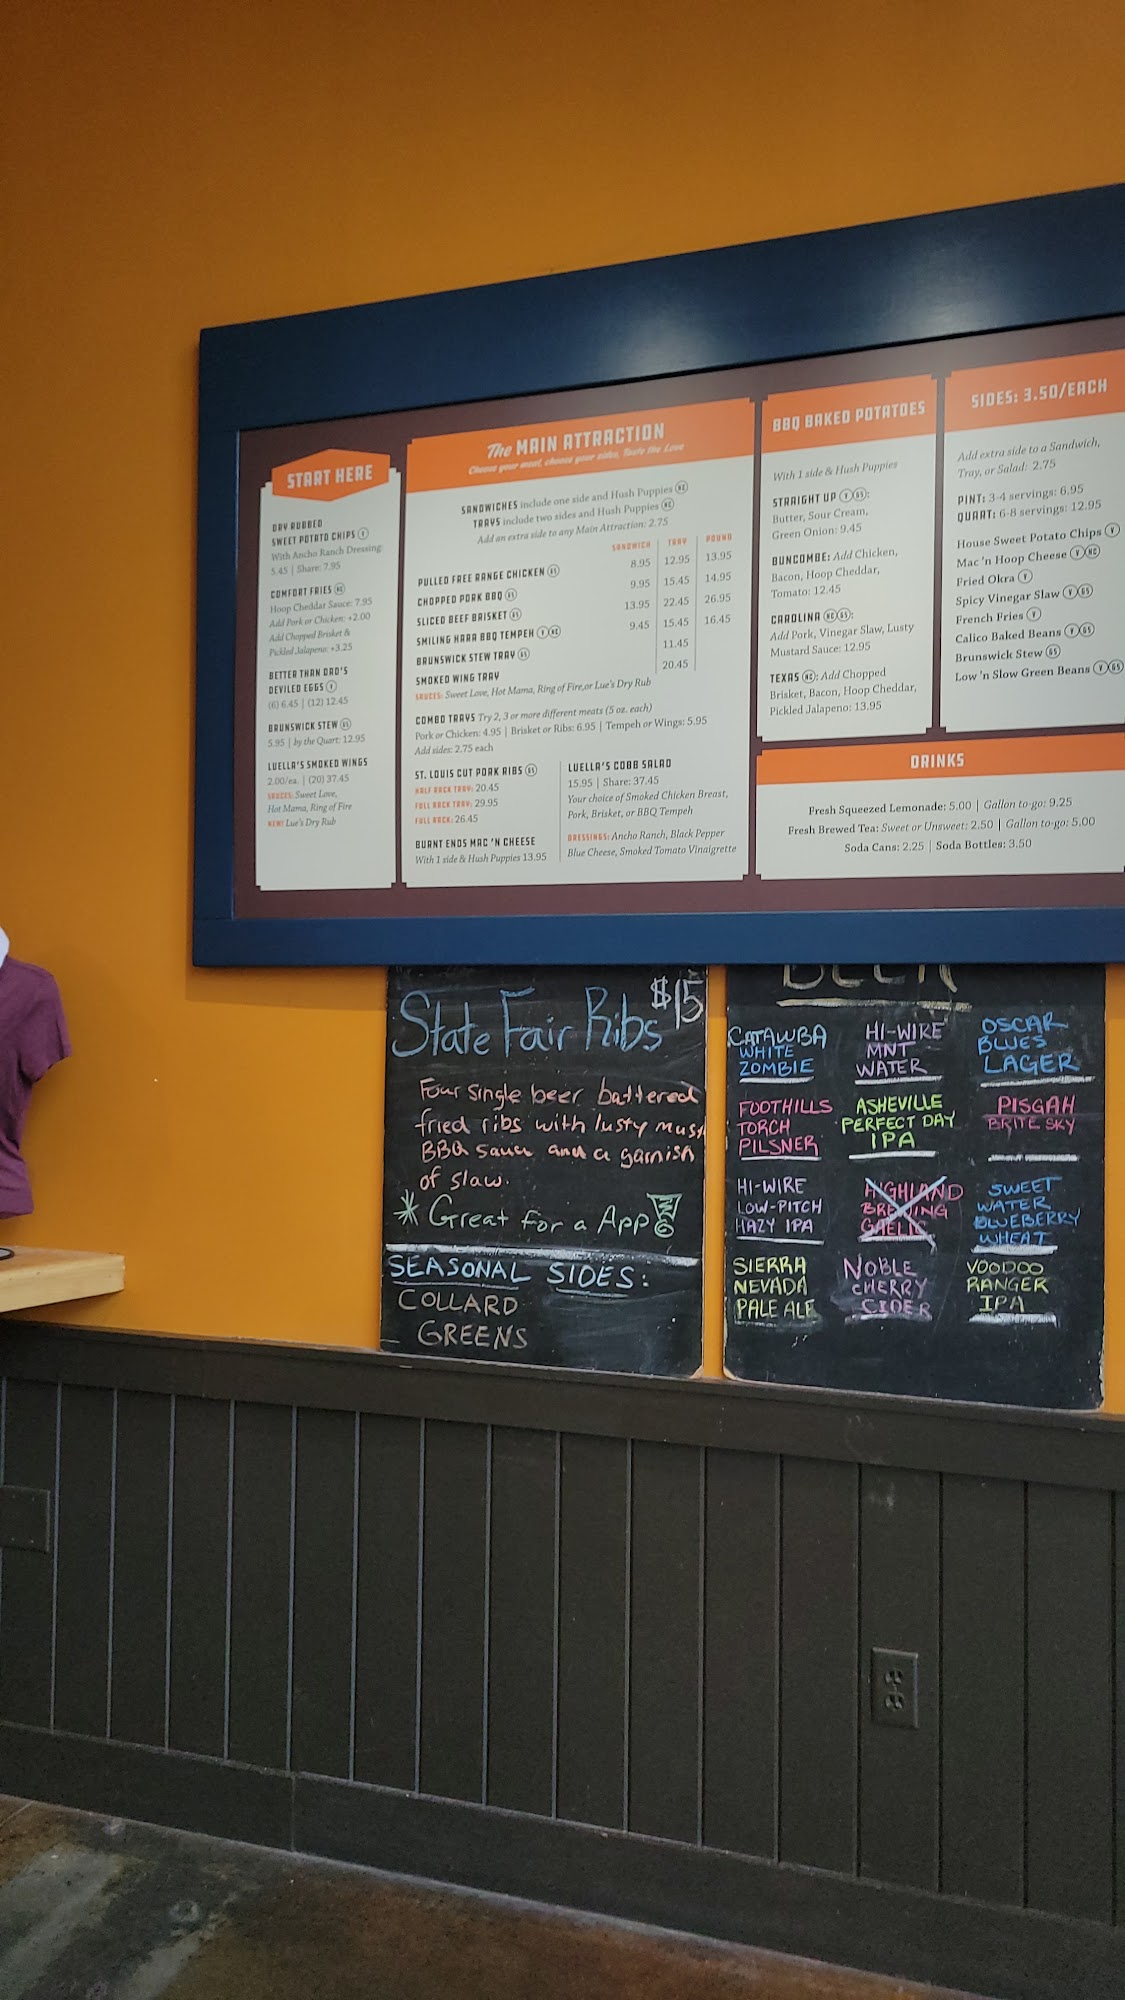 START HERE
DRY RUBBED
SWEET POTATO CHIPS V
With Ancho Ranch Dressing:
5.45 | Share: 7.95
COMFORT FRIES
Hoop Cheddar Sauce: 7.95
Add Pork or Chicken: +2.00
Add Chopped Brisket &
Pickled Jalapeno: +3.25
BETTER THAN DAD'S
DEVILED EGGS
(6) 6.45 | (12) 12.45
BRUNSWICK STEW
5.95 | by the Quart: 12.95
LUELLA'S SMOKED WINGS
2.00/ea. | (20) 37.45
SAUCES: Sweet Love,
Hot Mama, Ring of Fire
NEW! Lue's Dry Rub
The MAIN ATTRACTION
Choose your meat, choose your sides, Taste the Love
SANDWICHES include one side and Hush Puppies
TRAYS include two sides and Hush Puppies
Add an extra side to any Main Attraction: 2.75
SANDWICH TRAY POUND
PULLED FREE RANGE CHICKEN GS 8.95 12.95 13.95
CHOPPED PORK BBQ GS 9.95 15.45 14.95
SLICED BEEF BRISKET GS 13.95 22.45 26.95
SMILING HARA BBQ TEMPEH V 9.45 15.45 16.45
BRUNSWICK STEW TRAY GS 11.45
SMOKED WING TRAY 20.45
SAUCES: Sweet Love, Hot Mama, Ring of Fire,or Lue's Dry Rub
COMBO TRAYS Try 2, 3 or more different meats (5 oz. each)
Pork or Chicken: 4.95 | Brisket or Ribs: 6.95 | Tempeh or Wings: 5.95
Add sides: 2.75 each
ST. LOUIS CUT PORK RIBS GS
HALF RACK TRAY: 20.45
FULL RACK TRAY: 29.95
FULL RACK: 26.45
BURNT ENDS MAC 'N CHEESE
With 1 side & Hush Puppies 13.95
LUELLA'S COBB SALAD
15.95 | Share: 37.45
Your choice of Smoked Chicken Breast,
Pork, Brisket, or BBQ Tempeh
DRESSINGS: Ancho Ranch, Black Pepper
Blue Cheese, Smoked Tomato Vinaigrette
BBQ BAKED POTATOES
With 1 side & Hush Puppies
STRAIGHT UP V GS:
Butter, Sour Cream,
Green Onion: 9.45
BUNCOMBE: Add Chicken,
Bacon, Hoop Cheddar,
Tomato: 12.45
CAROLINA GS:
Add Pork, Vinegar Slaw, Lusty
Mustard Sauce: 12.95
TEXAS: Add Chopped
Brisket, Bacon, Hoop Cheddar,
Pickled Jalapeno: 13.95
SIDES: 3.50/EACH
Add extra side to a Sandwich,
Tray, or Salad: 2.75
PINT: 3-4 servings: 6.95
QUART: 6-8 servings: 12.95
House Sweet Potato Chips V
Mac 'n Hoop Cheese V
Fried Okra V
Spicy Vinegar Slaw V GS
French Fries V
Calico Baked Beans V GS
Brunswick Stew GS
Low 'n Slow Green Beans V GS
DRINKS
Fresh Squeezed Lemonade: 5.00 | Gallon to-go: 9.25
Fresh Brewed Tea: Sweet or Unsweet: 2.50 | Gallon to-go: 5.00
Soda Cans: 2.25 | Soda Bottles: 3.50
State Fair Ribs $15
Four single beer battered
fried ribs with lusty must
BBQ sauce and a garnish
of slaw.
* Great for a App!
SEASONAL SIDES:
COLLARD
GREENS
BEER
CATAWBA
WHITE
ZOMBIE
HI-WIRE
MNT
WATER
OSCAR
BLUES
LAGER
FOOTHILLS
TORCH
PILSNER
ASHEVILLE
PERFECT DAY
IPA
PISGAH
BRITE SKY
HI-WIRE
LOW-PITCH
HAZY IPA
HIGHLAND
BREWING
GAELIC
SWEET
WATER
BLUEBERRY
WHEAT
SIERRA
NEVADA
PALE ALE
NOBLE
CHERRY
CIDER
VOODOO
RANGER
IPA